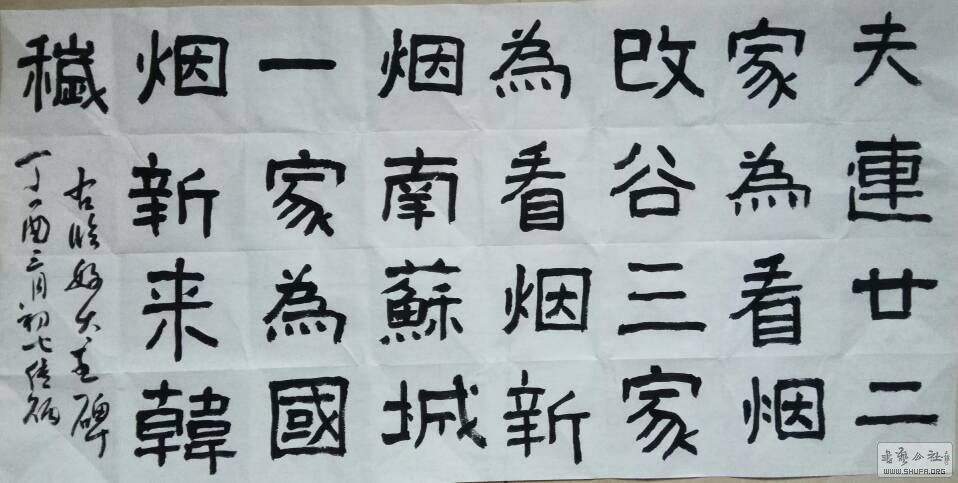 夫連廿二
家為看烟
改谷三家
為看烟新
烟南蘇城
一家為國
烟新来韓
穢
右临好大王碑
丁酉三月初七
书艺公社
WWW.SHUFA.ORG